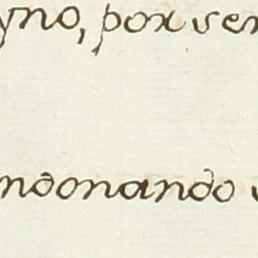 yno, por ser
ndonando